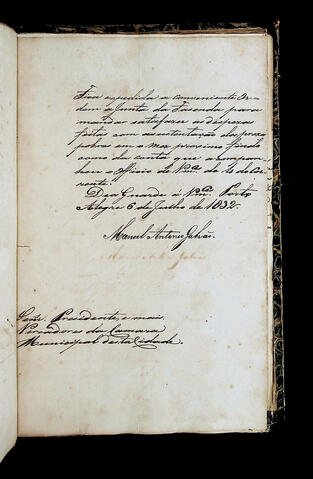 Fica expedida a conveniente Or-
dem a Junta da Fazenda para
mandar satisfazer as despezas
feitas com a sustentação dos prezos
pobres em o mez proximo findo
como da conta que acompa-
nhou o Officio de Vmces. de 4 do Cor-
rente.
Deos Guarde a Vmces. Porto
Alegre 6 de Julho de 1832.
Manoel Antonio Galvão.
Senrs. Presidente, e mais
Vereadores da Camara
Municipal desta Cidade.